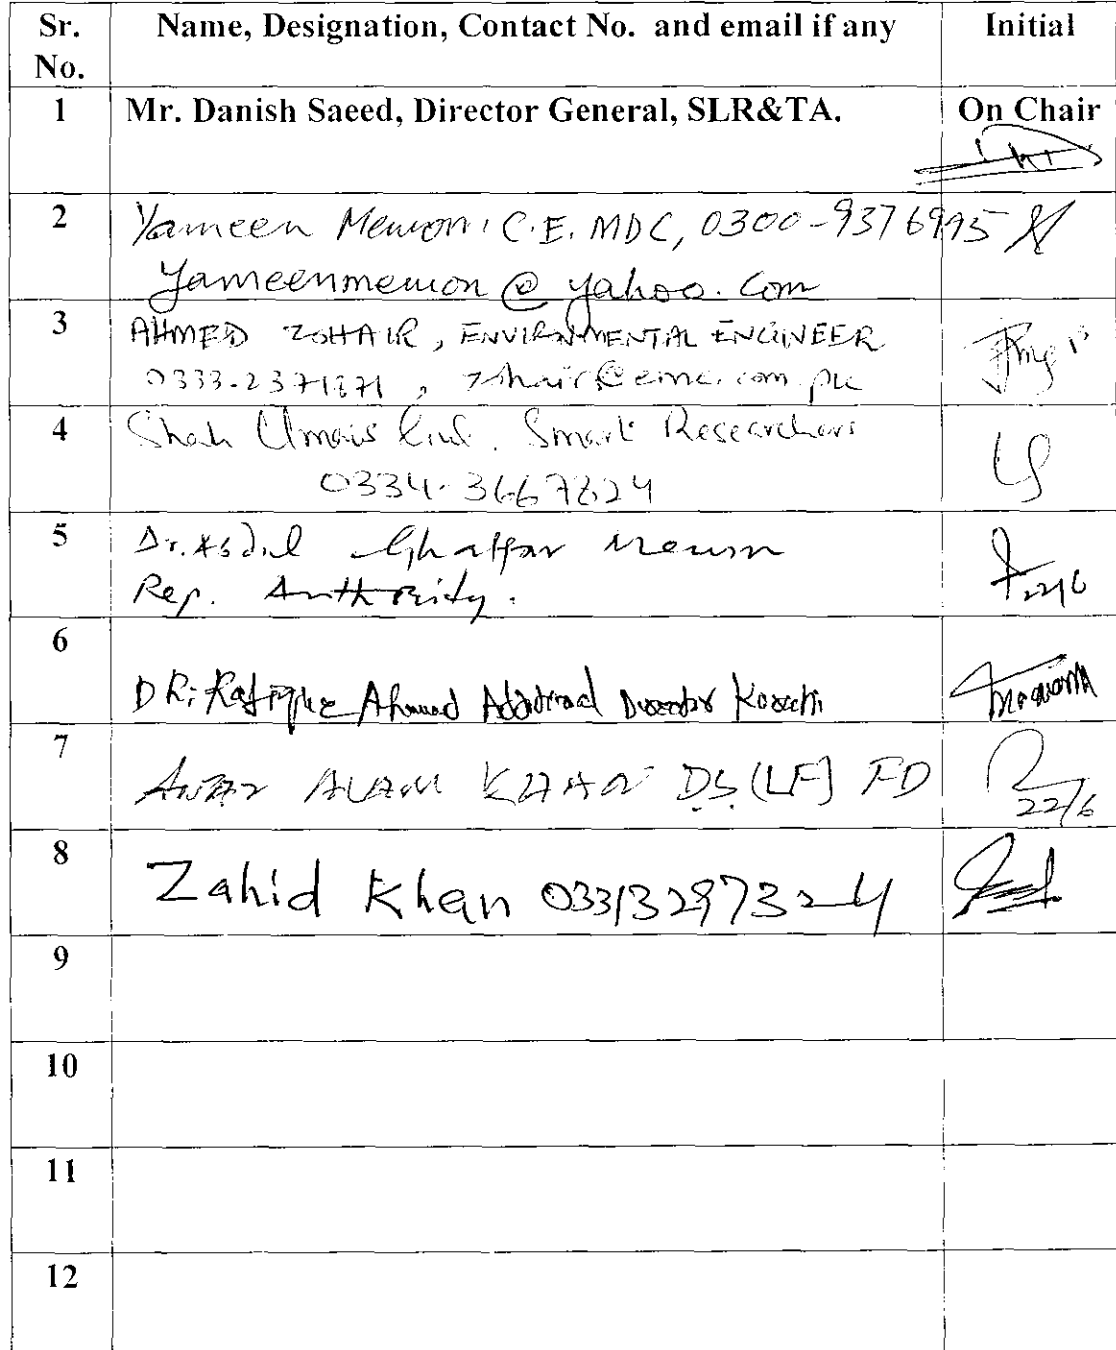 Sr. No. Name, Designation, Contact No. and email if any Initial
1 Mr. Danish Saeed, Director General, SLR&TA. On Chair
2 Yameen Memon, C.E. MDC, 0300-9376995
Yameenmemon@yahoo.com
3 AHMED ZOHAIR, ENVIRNMENTAL ENGINEER
0333-2371871, zohair@emc.com.pk
4 Shah Umais Smart Researchers
0334-3667824
5 Dr. Abdul Ghaffar Memon
Rep. Authority. 22/6
6 DR. Rafique Ahmed Additional Director Karachi
7 ALAM KHAN DS (LF) FD 22/6
8 Zahid Khan 03313297324
9
10
11
12